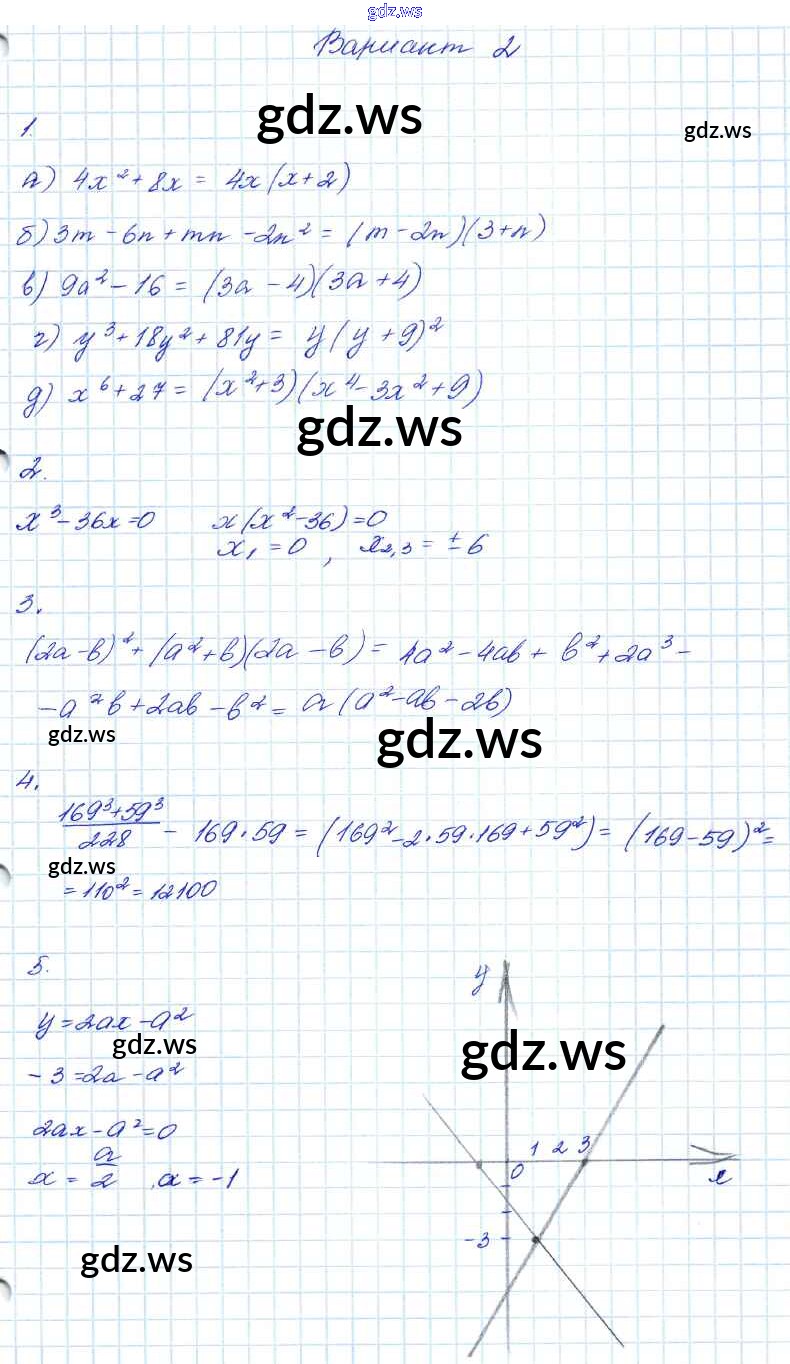 gdz.ws
Вариант 2
gdz.ws
1.
gdz.ws
а) 4x² + 8x = 4x(x+2)
б) 3m - 6n + mn - 2n² = (m - 2n)(3+n)
в) 9a² - 16 = (3a - 4)(3a + 4)
г) y³ + 18y² + 81y = y(y + 9)²
д) x⁶ + 27 = (x² + 3)(x⁴ - 3x² + 9)
gdz.ws
2.
x³ - 36x = 0 x(x² - 36) = 0
x₁ = 0, x₂,₃ = ± 6
3.
(2a - b)² + (a² + b)(2a - b) = 4a² - 4ab + b² + 2a³ -
- a²b + 2ab - b² = a(a² - ab - 2b)
gdz.ws
gdz.ws
4.
(169³ + 59³)/228 - 169·59 = (169² - 2·59·169 + 59²) = (169 - 59)² =
gdz.ws
= 110² = 12100
5.
y
y = 2ax - a²
gdz.ws
gdz.ws
- 3 = 2a - a²
2ax - a² = 0
1 2 3
x = a/2, a = -1
0
x
-3
gdz.ws